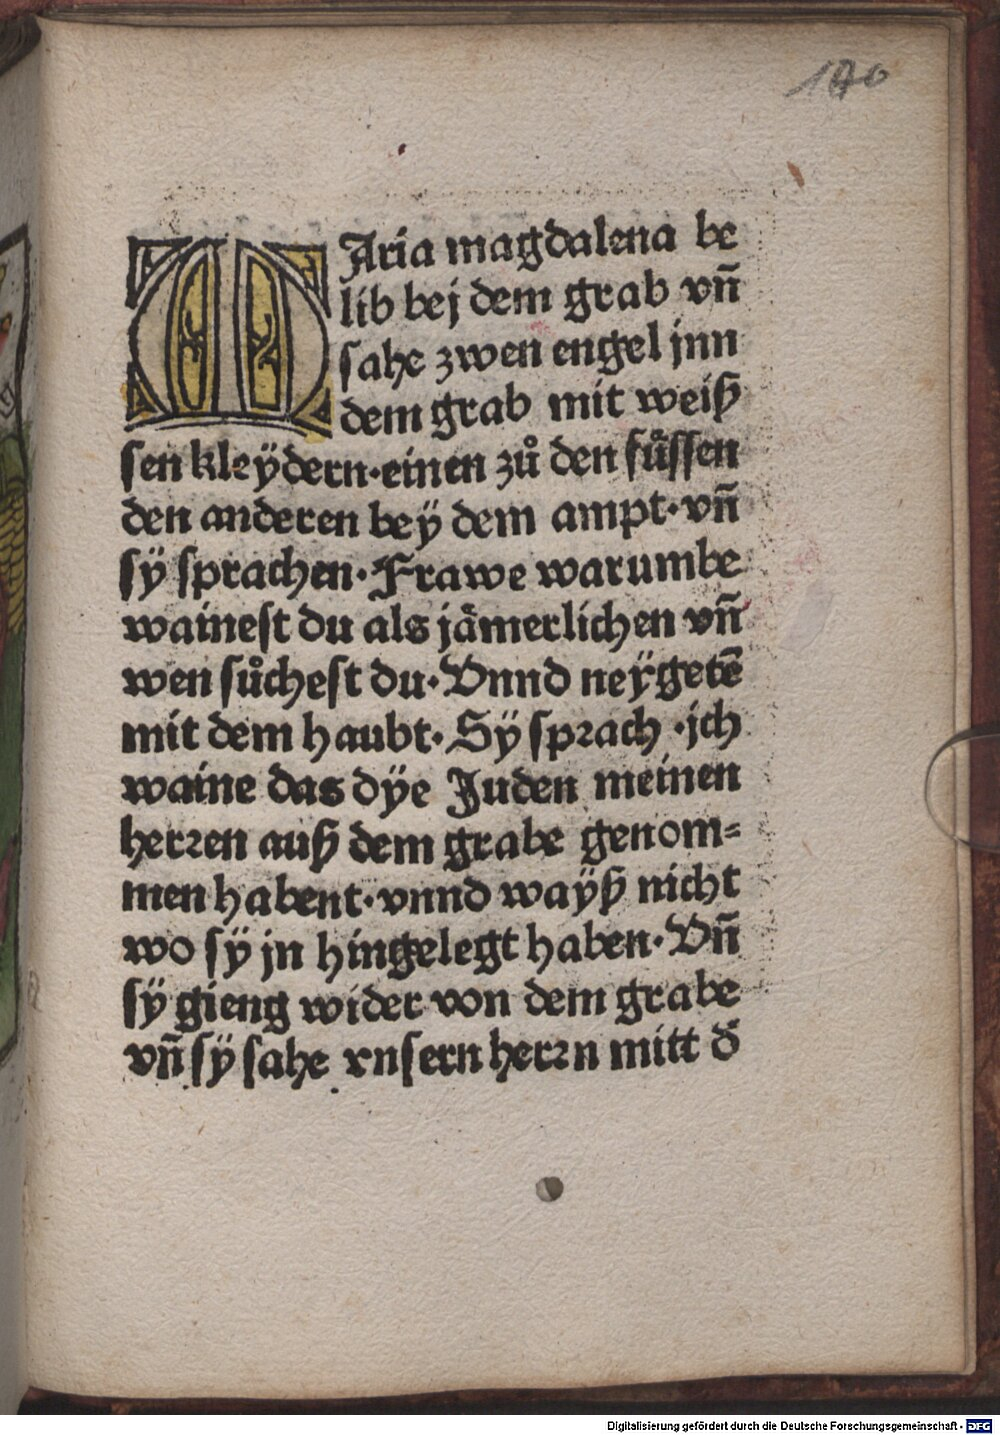 170
MAria magdalena be
lib bej dem grab vn̄
sahe zwen engel jnn
dem grab mit weiß
sen kleÿdern·einen zů den fuͤssen
den anderen beÿ dem ampt·vn̄
sÿ sprachen·Frawe warumbe
wainest du als jaͤmerlichen vn̄
wen sůchest du·Vnnd neÿgetē
mit dem haubt·Sÿ sprach ·jch
waine das dÿe Juden meinen
herren auß dem grabe genom=
men habent·vnnd waÿß nicht
wo sÿ jn hingelegt haben·Vn̄
sÿ gieng wider von dem grabe
vn̄ sÿ sahe vnsern herrn mitt d̄
Digitalisierung gefördert durch die Deutsche Forschungsgemeinschaft - DFG